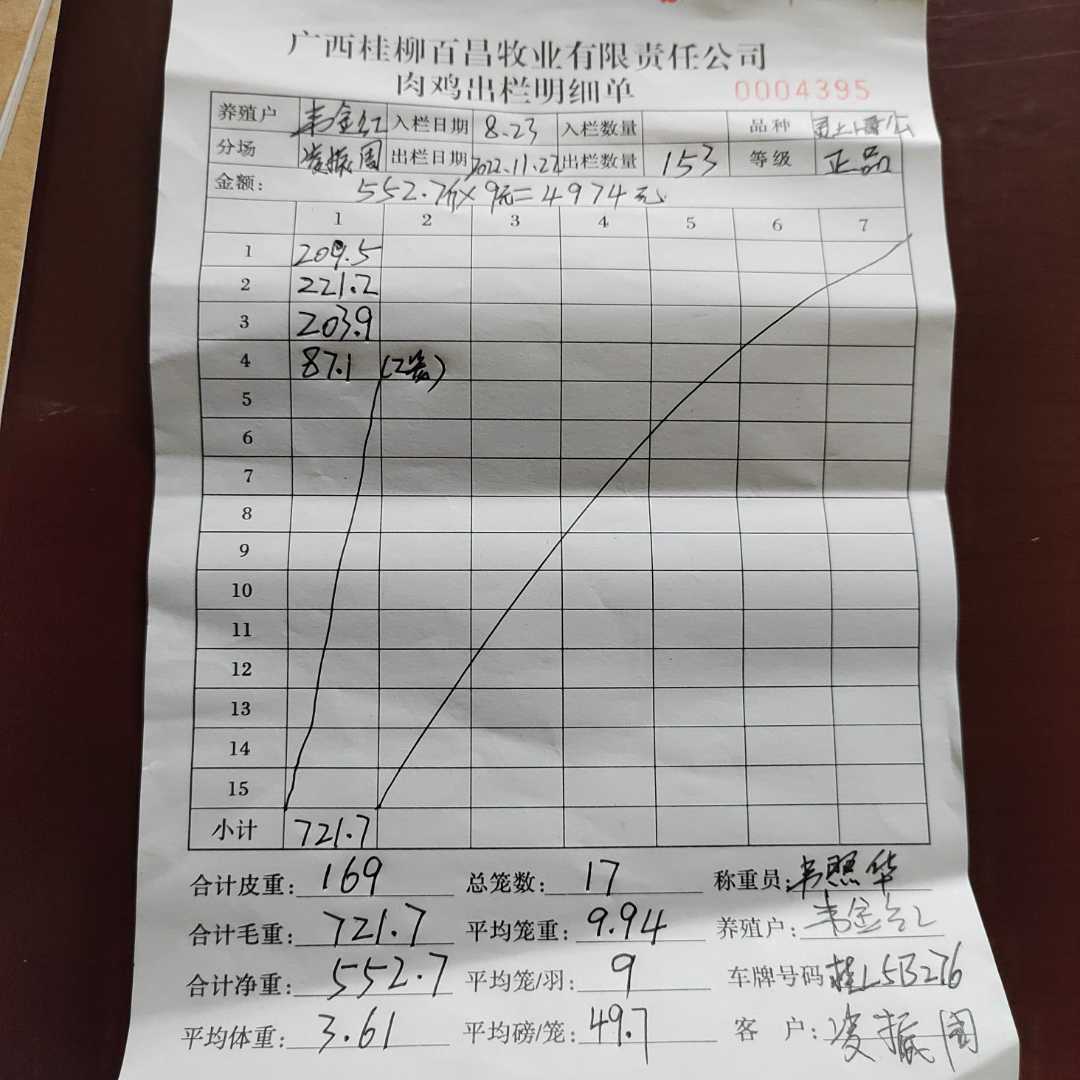 广西桂柳百昌牧业有限责任公司
肉鸡出栏明细单 0004395
养殖户 韦金红 入栏日期 8.23 入栏数量 品种
分场 凌振周 出栏日期 2022.11.22 出栏数量 153 等级 正品
金额: 552.7斤×9元=4974元
1 2 3 4 5 6 7
1 209.5
2 221.2
3 203.9
4 87.1
5
6
7
8
9
10
11
12
13
14
15
小计 721.7
合计皮重: 169 总笼数: 17 称重员: 韦照华
合计毛重: 721.7 平均笼重: 9.94 养殖户: 韦金红
合计净重: 552.7 平均笼/羽: 9 车牌号码 桂L5B276
平均体重: 3.61 平均磅/笼: 49.7 客户: 凌振周